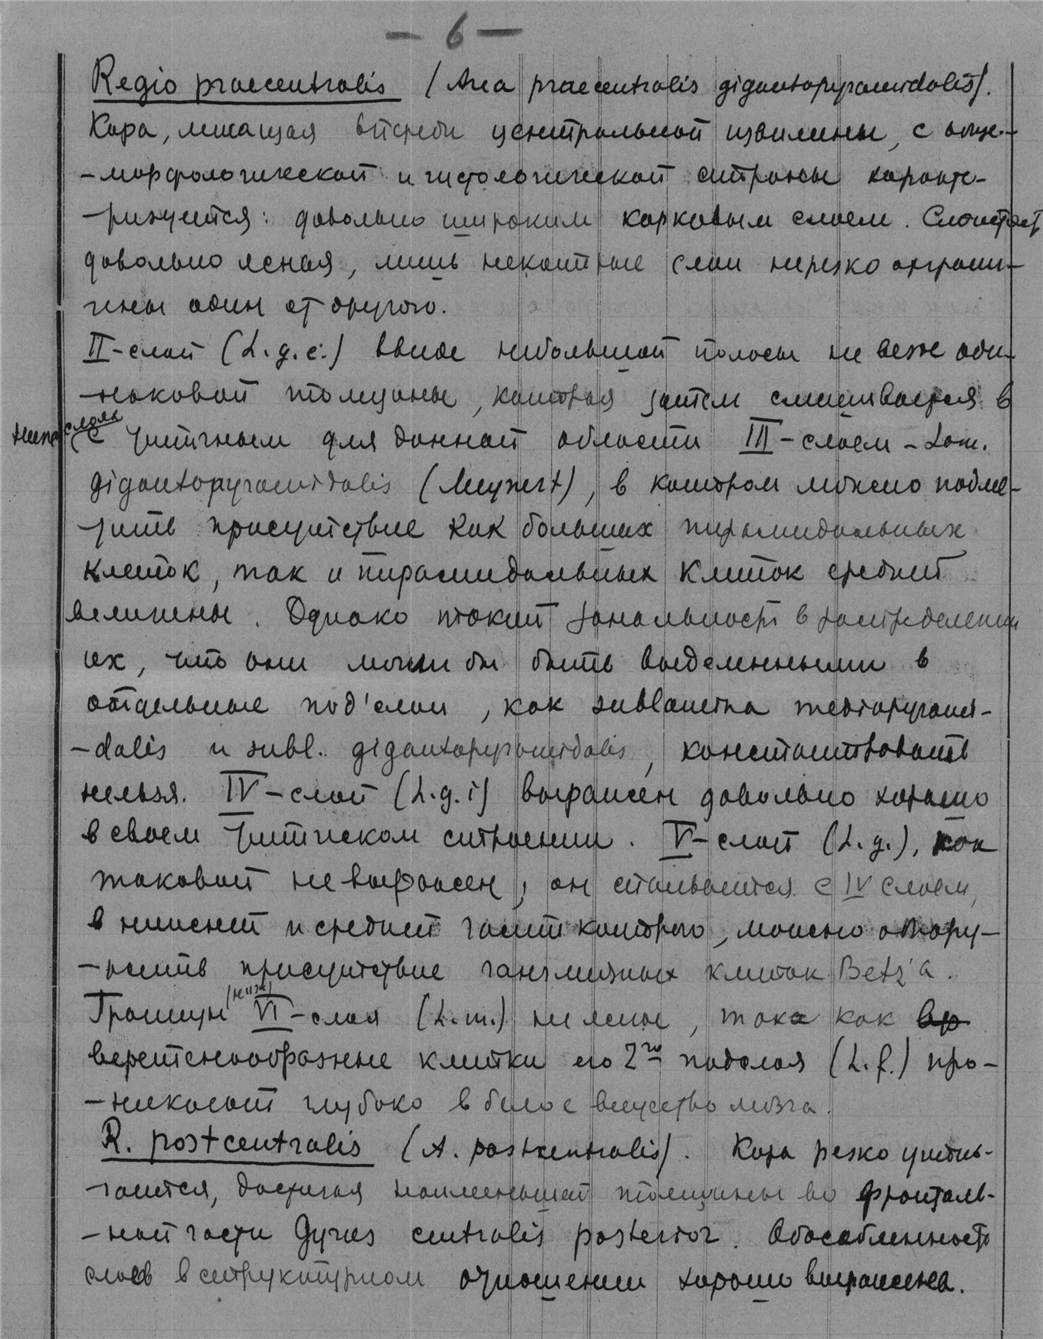 - 6 -
Regio praecentralis (Area praecentralis gigantopyramidalis).
Кора, лежащая впереди центральной извилины, с обще-
-морфологической и гистологической стороны характе-
-ризуется: довольно широким корковым слоем. Слоистость
довольно ясная, лишь некоторые слои нерезко ограни-
чены один от другого.
II-слой (L.g.e.) ввиде небольшой полосы не везде оди-
-наковой толщины, которая затем смешивается в
с типичным для данной области III-слоем - Lam.
gigantopyramidalis (Meynert), в котором можно подме-
тить присутствие как больших пирамидальных
клеток, так и пирамидальных клеток средней
величины. Однако такой зональности в распределении
их, что они могли бы быть выделенными в
отдельные под'слои, как sublamina mediopyrami-
-dalis и subl. gigantopyramidalis, констатировать
нельзя. IV-слой (L.g.i) выражен довольно хорошо
в своем типическом строении. V-слой (L.g.), как
таковой не выражен, он сливается с IV слоем,
в нижней и средней части которого, можно обнару-
-жить присутствие ганглиозных клеток Betz'a.
Границы VI-слоя (L.m.) не ясны, так как
веретенообразные клетки его 2го подслоя (L.f.) про-
-никают глубоко в белое вещество мозга.
R. postcentralis (A. postcentralis). Кора резко утонь-
-чается, достигая наименьшей толщины во фронталь-
-ной части Gyrus centralis posterior. Обособленность
слоев в структурном отношении хорошо выражена.